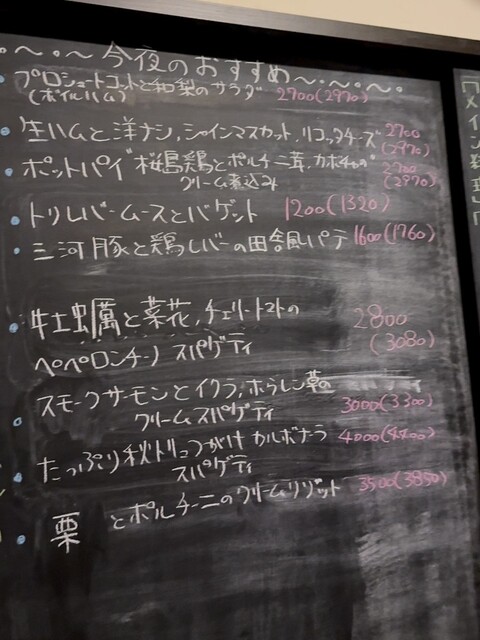 。〜。〜今夜のおすすめ〜。〜。〜。
プロシュートコットと和梨のサラダ 2700(2970)
(ボイルハム)
生ハムと洋ナシ,シャインマスカット,リコッタチーズ 2700
(2970)
ポットパイ 桜島鶏とポルチーニ茸,カボチャの 2700
クリーム煮込み (2970)
トリレバームースとバゲット 1200(1320)
三河豚と鶏レバーの田舎風パテ 1600(1760)
牡蠣と菜花,チェリートマトの 2800
ペペロンチーノ スパゲティ (3080)
スモークサーモンとイクラ,ホうレン草の
クリームスパゲティ 3000(3300)
たっぷり秋トリュフがけ カルボナーラ 4000(4400)
スパゲティ
栗 とポルチーニのクリームリゾット 3500(3850)
メイン料理